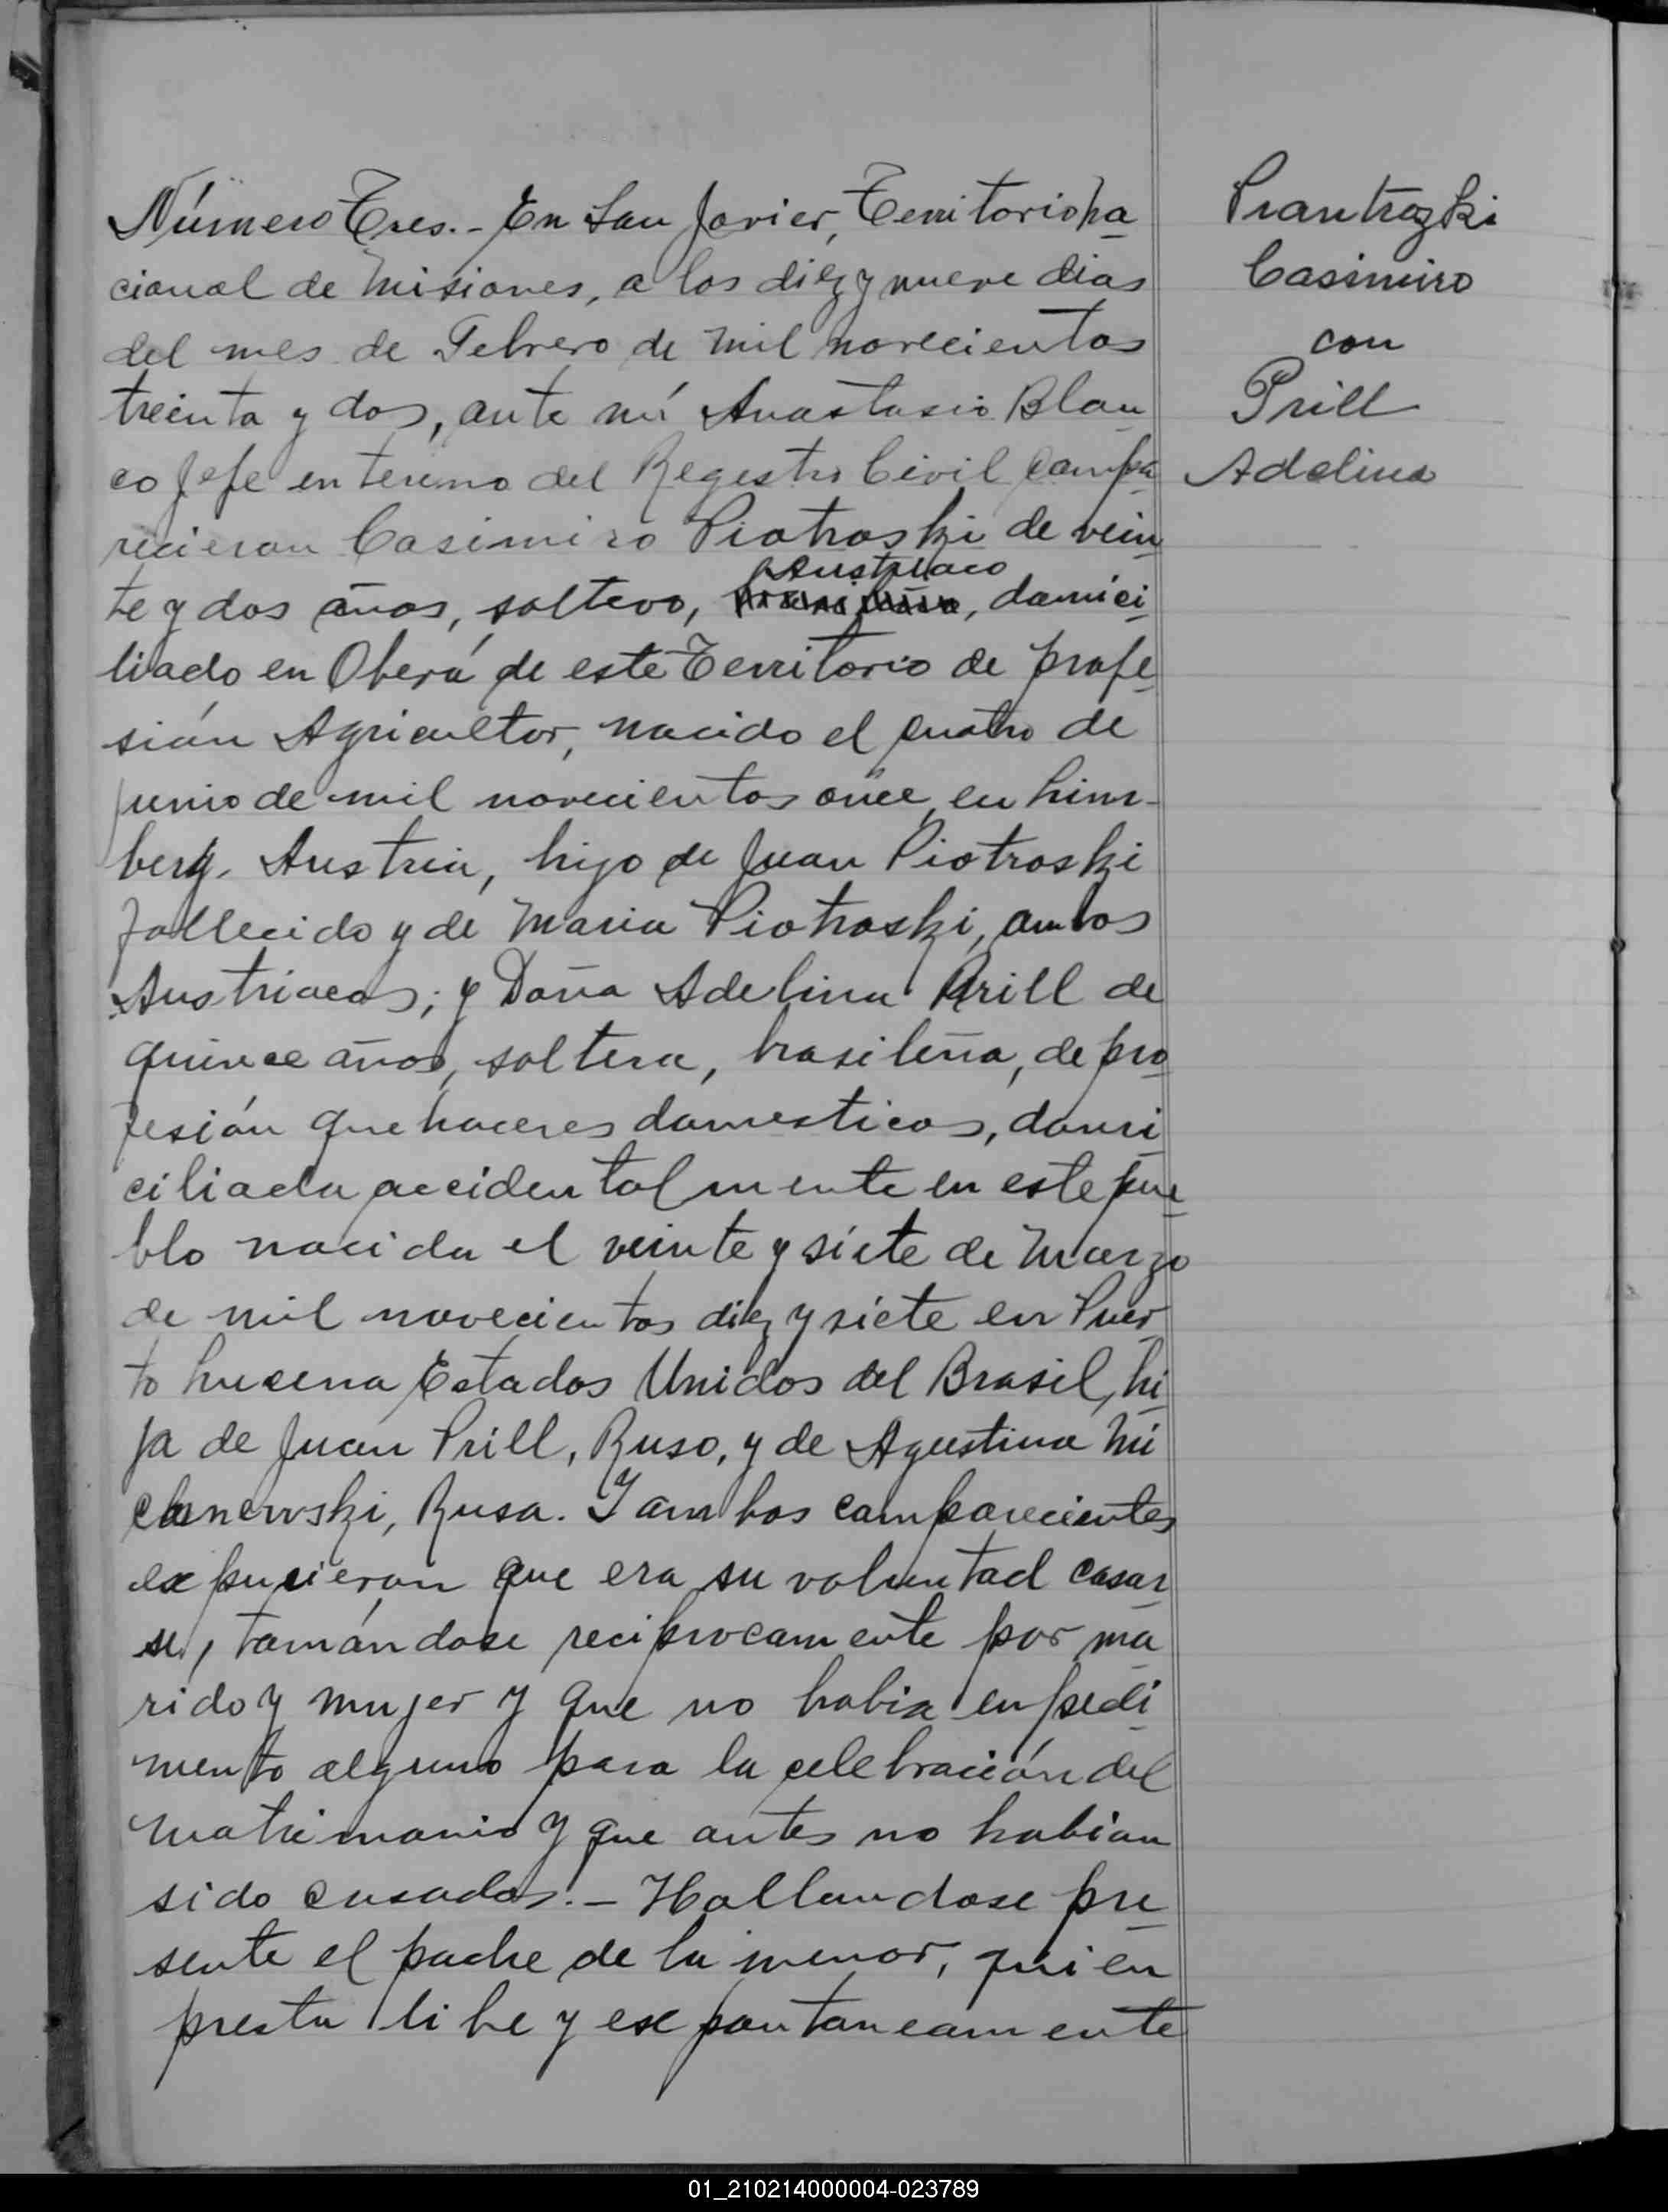 Número Tres.- En San Javier, Territorio na
cional de Misiones, a los diez y nueve dias
del mes de Febrero de mil novecientos
treinta y dos, ante mí Anastasio Blan
co Jefe en terreno del Registro Civil compa
recieron Casimiro Piotroski de vein
Austriaco
te y dos años, soltero, domici
liado en Oberá de este Territorio de profe
sión Agricultor, nacido el cuatro de
Junio de mil novecientos once, en Lim-
berg. Austria, hijo de Juan Piotroski
fallecido y de Maria Piotroski, ambos
Austriacos; y Doña Adelina Prill de
quince años, soltera, brasileña, de pro
fesión quehaceres domesticos, domi
ciliada accidentalmente en este pue
blo nacida el veinte y siete de Marzo
de mil novecientos diez y siete en Puer
to Lucena Estados Unidos del Brasil, hi
ja de Juan Prill, Ruso, y de Agustina Mi
, Rusa. I ambos comparecientes
expucieron que era su voluntad casar
se, tomándose reciprocamente por ma
rido y mujer y que no habia enpedi
mento alguno para la celebración del
matrimonio y que antes no habian
sido casados.- Hallandose pre
sente el padre de la menor, quien
presta libe y expontaneamente
Casimiro
con
Prill
Adelina
01_210214000004-023789